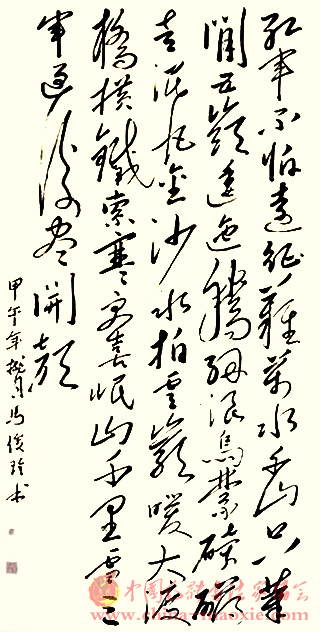 紅軍不怕遠征難萬水千山只等
閒五嶺逶迤騰細浪烏蒙磅礴
走泥丸金沙水拍雲崖暖大渡
橋橫鐵索寒更喜岷山千里雪三
軍過後盡開顏
甲午年月馬俊玲书